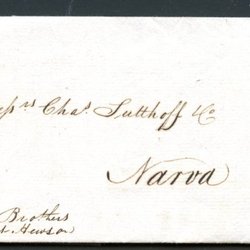 Chas Sutthoff & Co
Narva
Brothers
Hewson